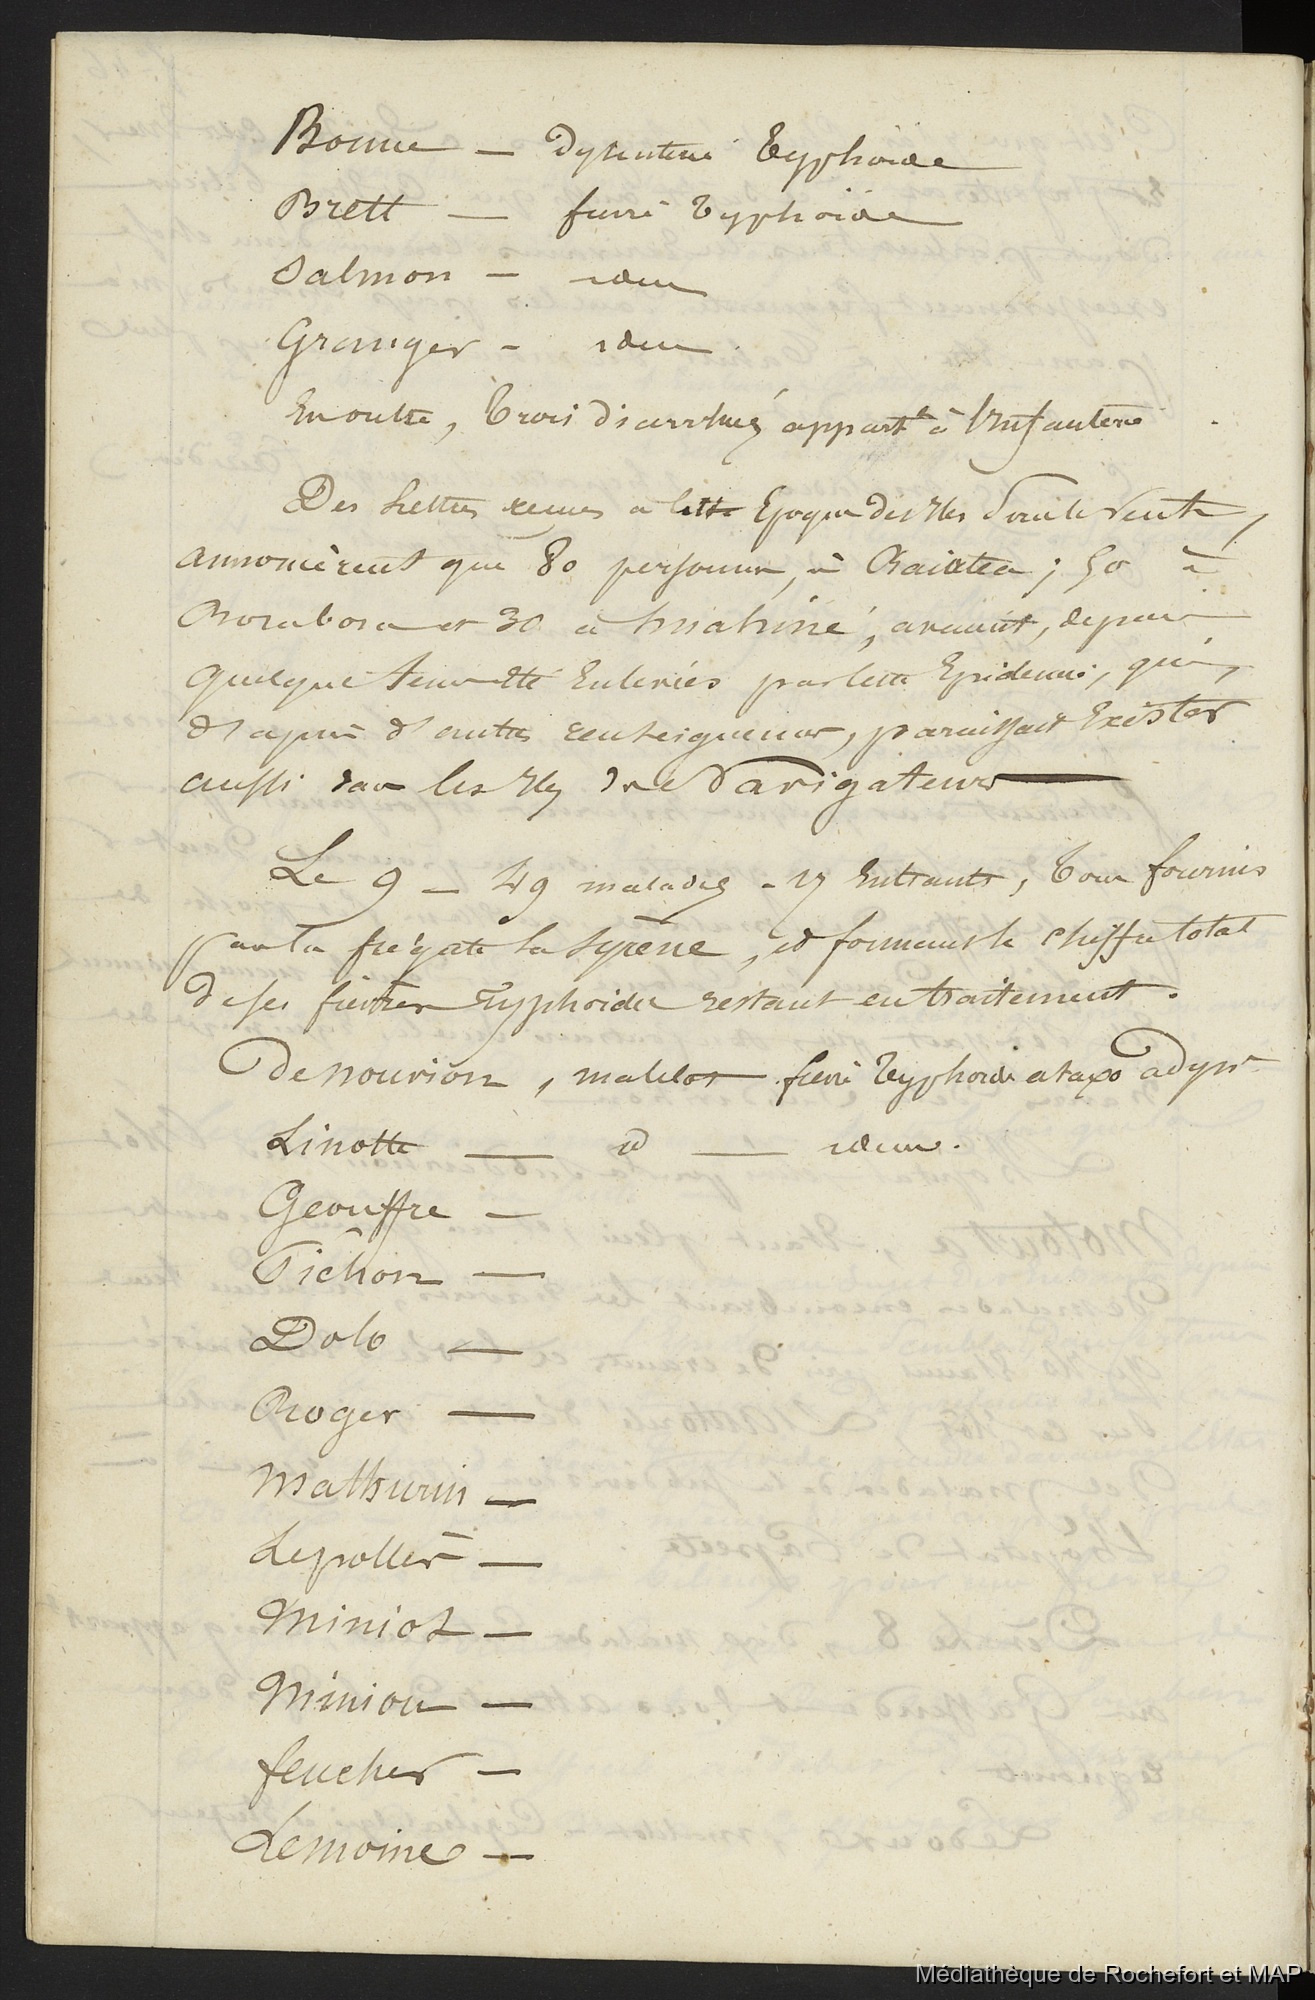 Bonne — Dysenterie Typhoïde
Brett — fievre typhoïde
Salmon — idem
Granger — idem
En outre, trois diarrhées appartt à l'Infanterie
Des Lettres reçues à cette Epoque des Iles Sous le Vent,
annoncèrent que 80 personnes, à Raiatea ; 50 à
Borabora et 30 à huahiné, avaient, depuis
quelque tems été Enlevées par cette Epidemie, qui,
d'après d'autres renseignemens, paraissait Exister
aussi dans les Iles des Navigateurs
Le 9 — 49 malades - 17 Entrants, tous fournis
par la frégate la Syrène, et formant le chiffre total
de ses fièvres Typhoïdes restant en traitement.
Denourion, matelot fievre Typhoïde ataxo adyne
Linotte — id — idem.
Geouffre —
Pichon —
Dolo —
Roger —
Mathurin —
Lepollèr —
Miniot —
Miniou —
feucher —
Lemoine —
Médiathèque de Rochefort et MAP